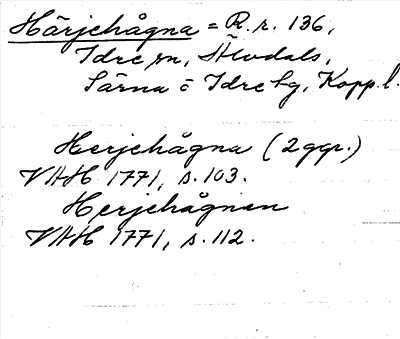 Härjehågna = R.r. 136,
Idre sn, Älvdals,
Särna o Idre tg, Kopp. l.
Herjehågna (2 ggr.)
VAH 1771, s. 103.
Herjehågnen
VAH 1771, s. 112.